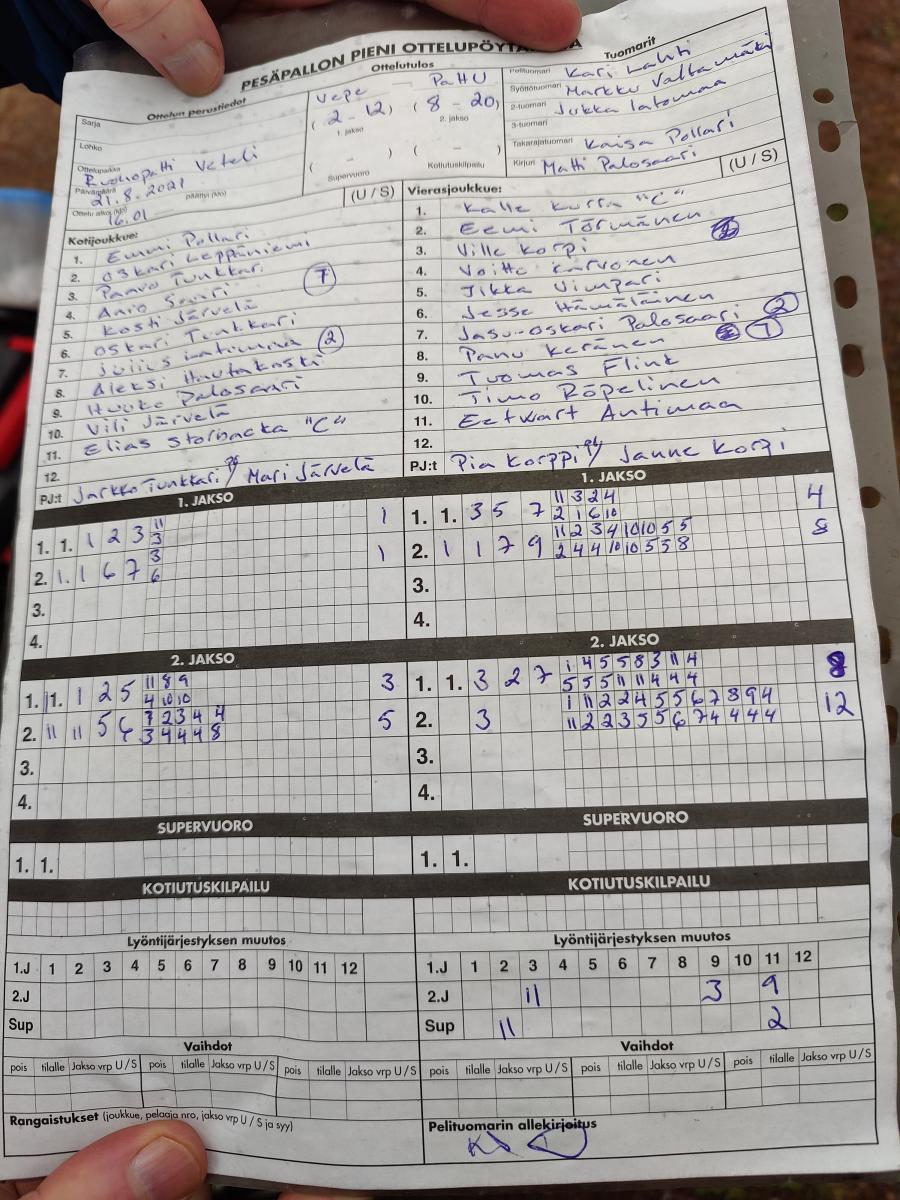 PESÄPALLON PIENI OTTELUPÖYTÄ
Ottelun perustiedot
Sarja
Lohko
Ottelupaikka
Veteli
Päivämäärä
21.8.2021
Ottelu alkoi (klo) 16.01
(U / S)
Ottelutulos
Vepe PaHU
(2-12) (8-20)
1. jakso 2. jakso
( - ) ( - )
Supervuoro Kotiutuskilpailu
Tuomarit
Pelituomari Kari Lahti
Syöttötuomari Markku Valtamäki
2-tuomari Jukka Latomaa
3-tuomari
Takarajatuomari Kaisa Pollari
Kirjuri Matti Palosaari
(U / S)
Kotijoukkue:
1. Emmi Pollari
2. Oskari Leppäniemi
3. Paavo Tunkkari
4. Ario Saari 7
5. Kosti Järvelä
6. Oskari Tunkkari
7. Julius Latomaa 2
8. Aleksi Hautakoski
9. Huuko Palosaari
10. Vili Järvelä
11. Elias Storbacka "C"
12.
PJ:t Jarkko Tunkkari / Mari Järvelä
Vierasjoukkue:
1. Kalle Kurra "C"
2. Eemi Törmänen
3. Ville Korpi
4. Voitto Karvonen
5. Jikka Vimpari
6. Jesse Hämäläinen
7. Jasu-Oskari Palosaari 2
8. Panu Keränen 1
9. Tuomas Flink
10. Timo Röpelinen
11. Eetwart Antimaa
12.
PJ:t Pia Korppi / Janne Korpi
1. JAKSO
1. 1. 1 2 3 11 1
3
2. 1. 1 6 7 3 1
6
3.
4.
1. JAKSO
1. 1. 3 5 7 11 3 2 4 4
2 1 6 10
2. 1 1 7 9 11 2 3 4 10 10 5 5 8
2 4 4 10 10 5 5 8
3.
4.
2. JAKSO
1. 1. 1 2 5 11 8 9 3
4 10 10
2. 11 11 5 6 7 2 3 4 4 5
3 4 4 4 8
3.
4.
2. JAKSO
1. 1. 3 2 7 1 4 5 5 8 3 11 4 8
5 5 5 11 11 4 4 4
2. 3 1 11 2 2 4 5 5 6 7 8 9 4 12
11 2 2 3 5 5 6 7 4 4 4 4
3.
4.
SUPERVUORO
1. 1.
SUPERVUORO
1. 1.
KOTIUTUSKILPAILU
KOTIUTUSKILPAILU
Lyöntijärjestyksen muutos
1.J 1 2 3 4 5 6 7 8 9 10 11 12
2.J
Sup
Lyöntijärjestyksen muutos
1.J 1 2 3 4 5 6 7 8 9 10 11 12
2.J 11 3 9
Sup 11 2
Vaihdot
pois tilalle Jakso vrp U / S pois tilalle Jakso vrp U / S pois tilalle Jakso vrp U / S
Vaihdot
pois tilalle Jakso vrp U / S pois tilalle Jakso vrp U / S pois tilalle Jakso vrp U / S
Rangaistukset (joukkue, pelaaja nro, jakso vrp U / S ja syy)
Pelituomarin allekirjoitus